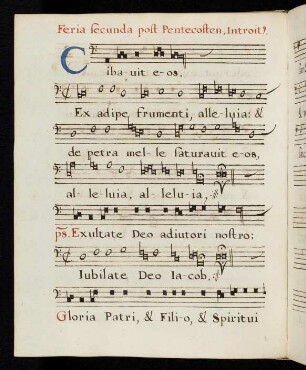 Feria secunda post Pentecosten, Introit9.
Ciba-uit e-os,
Ex adipe, frumenti, alle-luia: &
de petra mel-le saturauit e-os,
al-le-luia, al-lelu-ia,
ps. Exultate Deo adiutori nostro:
Iubilate Deo Ia-cob,
Gloria Patri, & Fili-o, & Spiritui